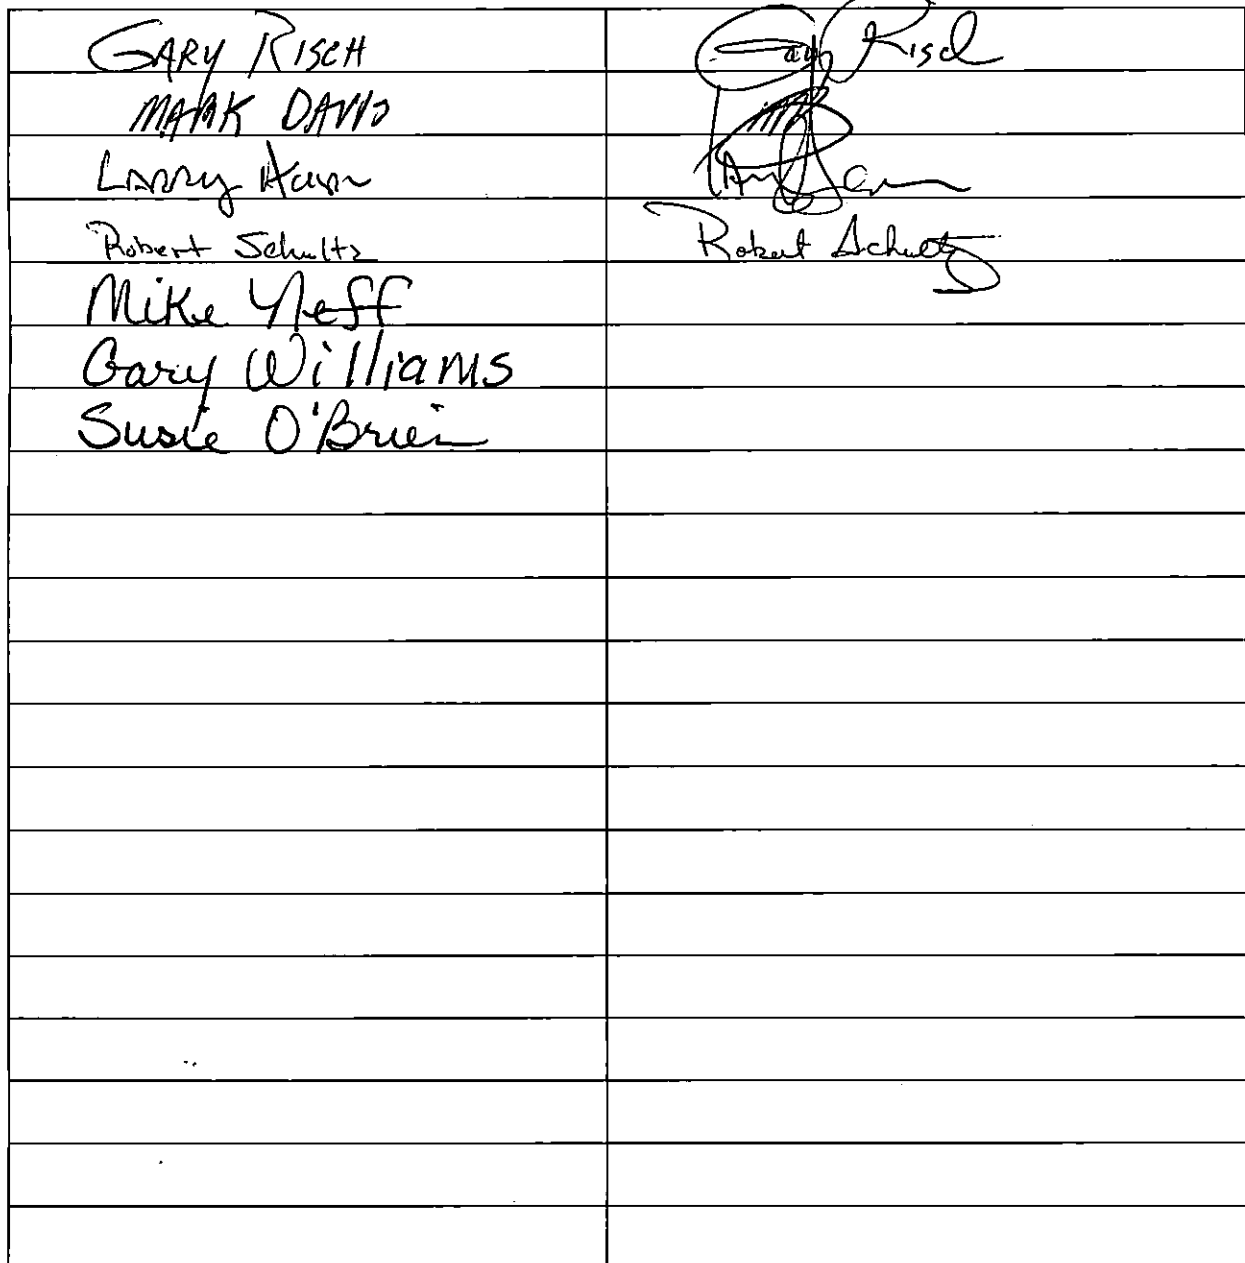 GARY RISCH Gary Risch
MARK DAVIS
Larry
Robert Schultz Robert Schultz
Mike Neff
Gary Williams
Susie O'Brien